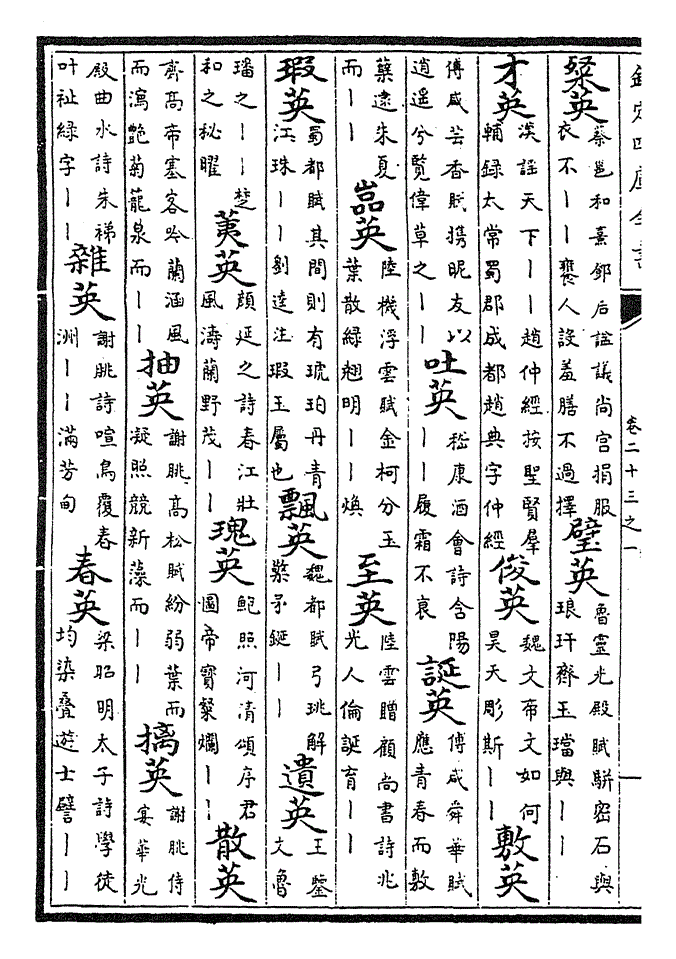 欽定四庫全書 卷二十三之一 一
粲英 蔡邕和熹鄧后諡議尚宮捐服衣不丨丨褻人設羞膳不過擇 璧英 魯靈光殿賦駢密石與琅玕齊玉璫與丨丨
才英 漢謡天下丨丨趙仲經按聖賢羣輔録太常蜀郡成都趙典字仲經 俊英 魏文帝文如何昊天彫斯丨丨 敷英
傅咸芸香賦攜昵友以逍遥兮覽偉草之丨丨 吐英 嵇康酒會詩含陽丨丨履霜不衰 誕英 傅咸舜華賦應青春而敷
蘂逺朱夏而丨丨 嵓英 陸機浮雲賦金柯分玉葉散緑翹明丨丨煥 至英 陸雲贈顧尚書詩兆光人倫誕育丨丨
瑕英 蜀都賦其間則有琥珀丹青江珠丨丨劉逵注瑕玉屬也 飄英 魏都賦弓珧解檠矛鋋丨丨 遺英 王鑒文魯
璠之丨丨楚和之秘曜 荑英 顔延之詩春江壯風濤蘭野茂丨丨 瑰英 鮑照河清頌序君圖帝寶粲爛丨丨 散英
齊髙帝塞客吟蘭涵風而瀉艷菊籠泉而丨丨 抽英 謝朓髙松賦紛弱葉而凝照競新藻而丨丨 摛英 謝朓侍宴華光
殿曲水詩朱禘叶祉緑字丨丨 雜英 謝朓詩喧鳥覆春洲丨丨滿芳甸 春英 梁昭明太子詩學徒均染疊遊士譬丨丨